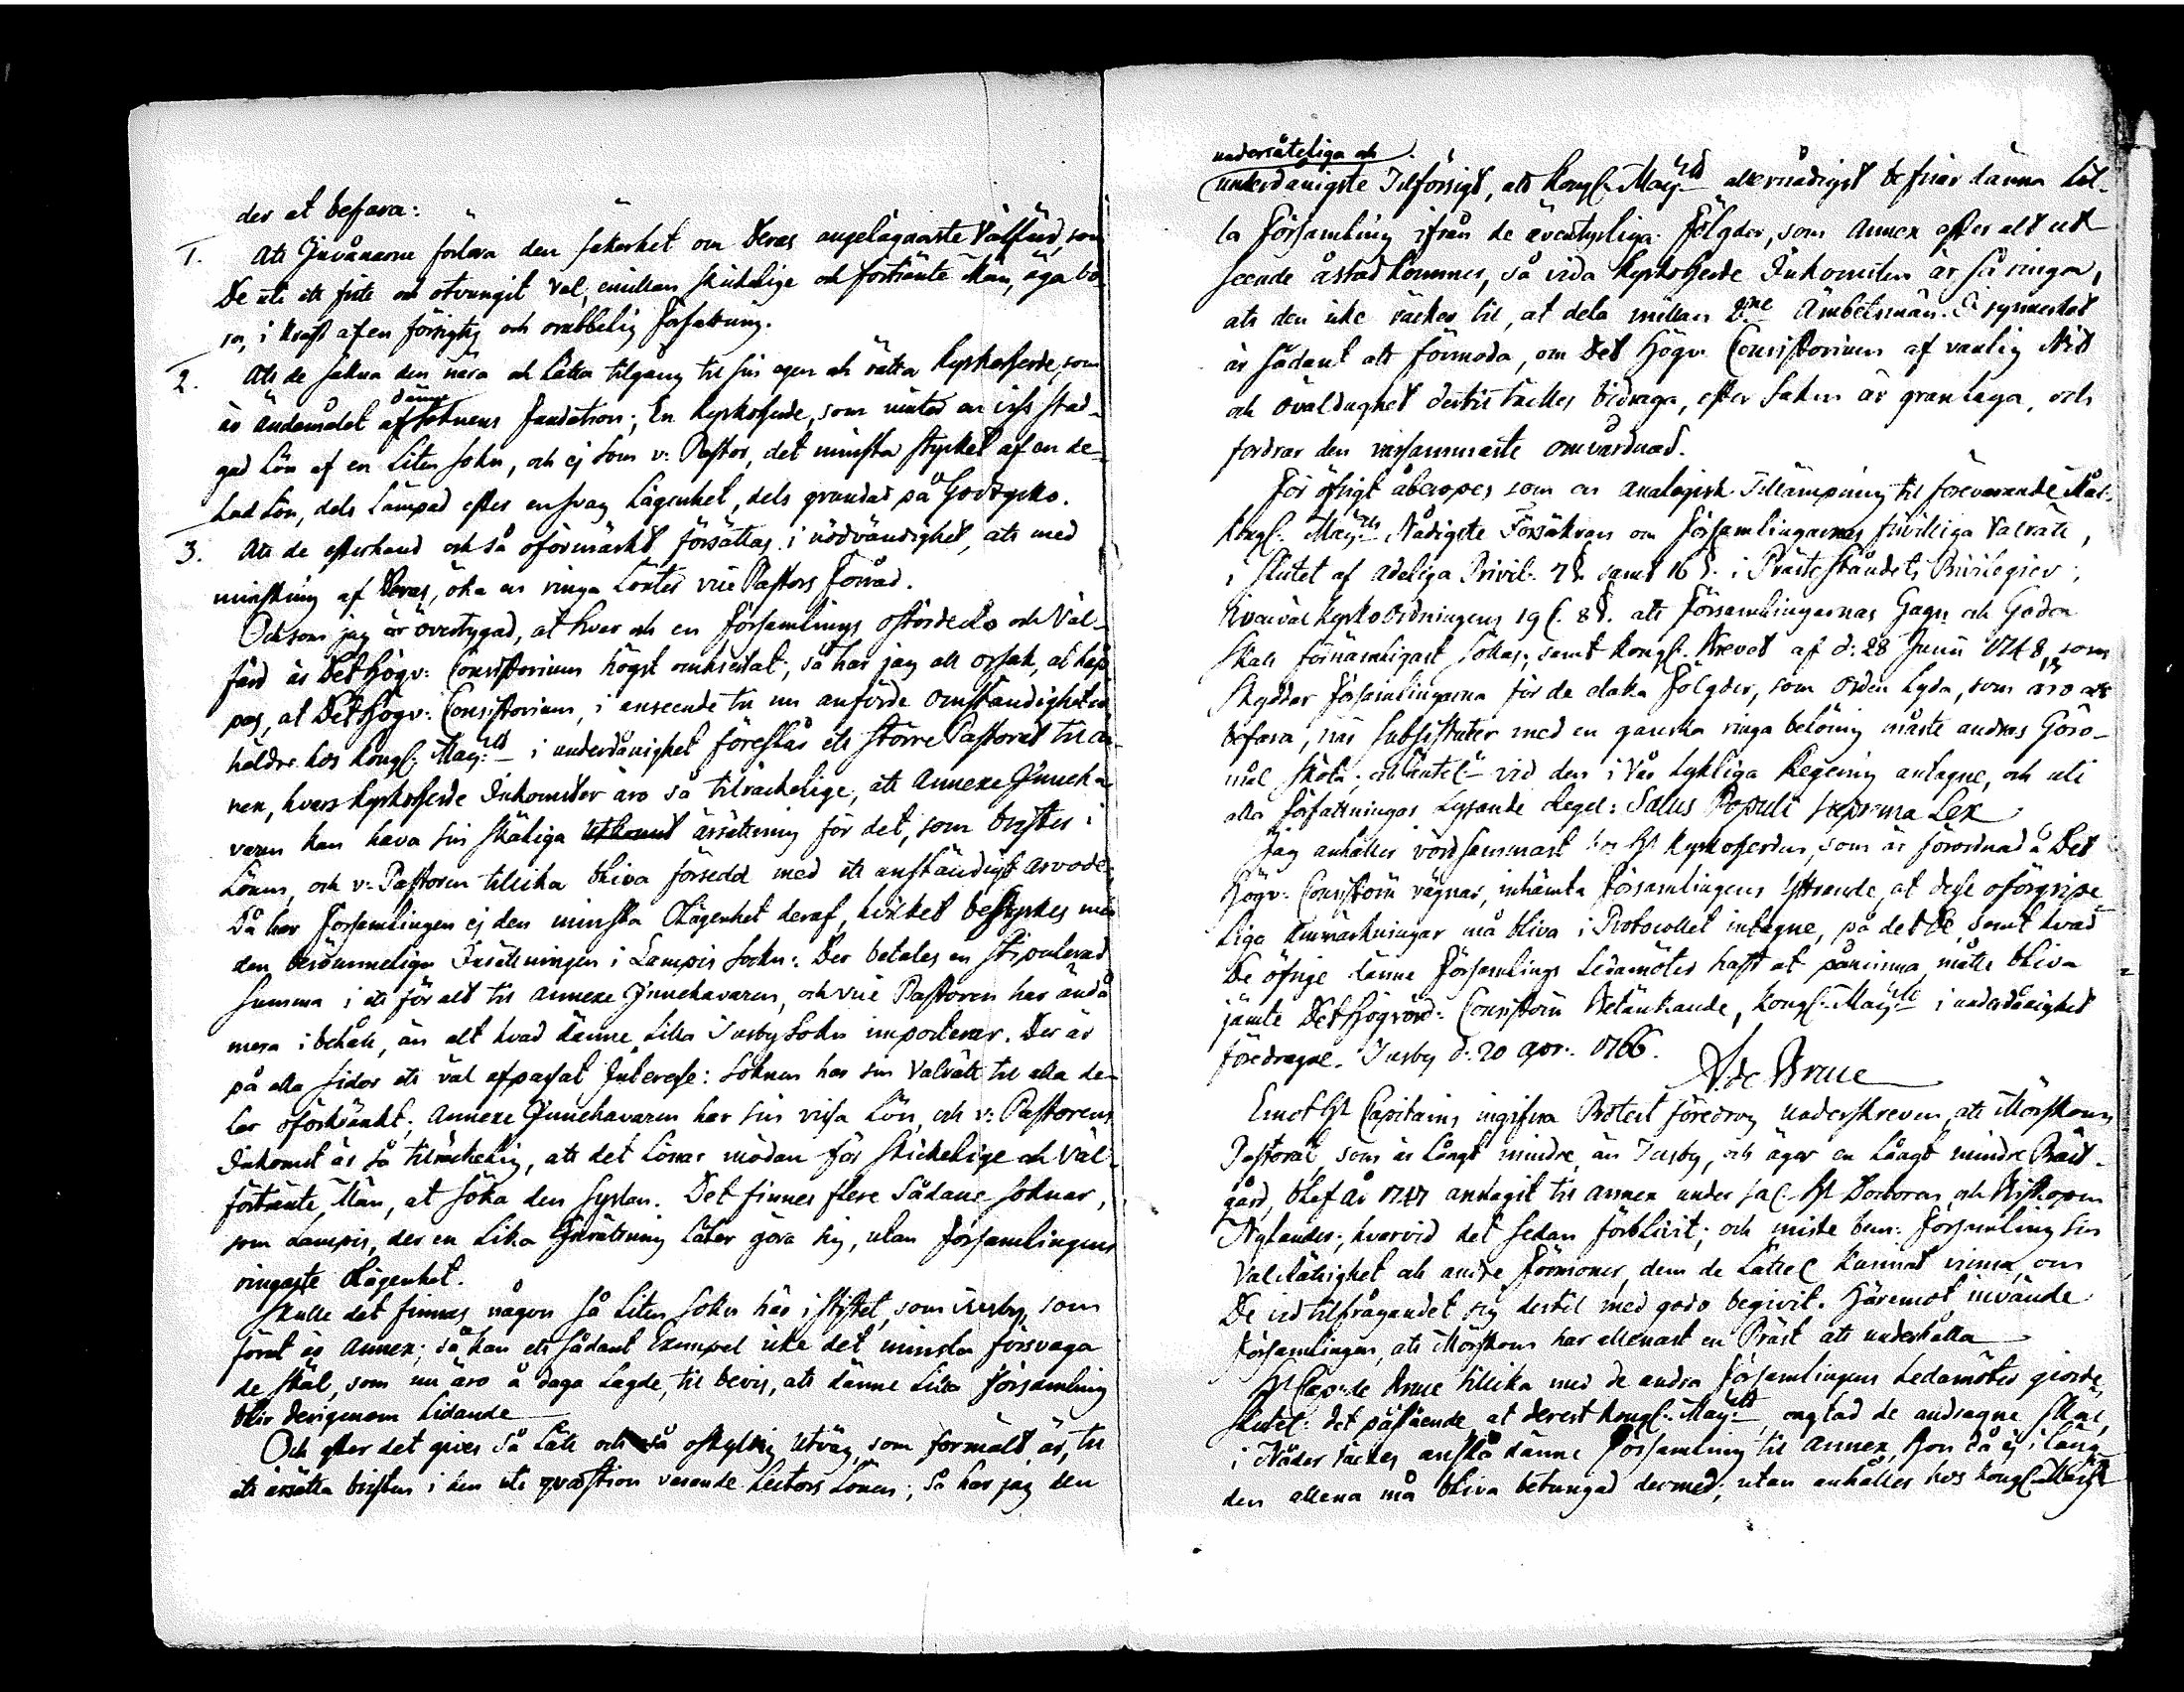 der at befara:
1. Att Invånarne förlora den säkerhet om Deras angelägnaste Välfärd, som
De uti ett fritt och otvungit val, emillan skickelige och förtiänte Män, äga bö-
ra, i kraft af en försigtig och orubbelig författning.
2. Att de sakna den nära och lätta tilgång til sin egen och rätta Kyrkoherde, som
är ändamålet af denne Soknens fundation; En Kyrkoherde, som niuter en viss stad-
gad Lön af en Liten Sokn, och ej som v: Pastor, det minsta stycket af en de-
lad Lön, dels Lämpad efter en svag Lägenhet, dels grundad på Godtycke.
3. Att de efterhand och så oförmärkt försättas i nödvändighet, att med
minskning af Deras, öka en ringa Lönted vice Pastors Förråd.
Och som jag är övertygad, at hvar och en Församlings ofördeelte och Väl-
färd är Det Högv: Consistorium högst omhuldat; så har jag all orsak, at hop-
pas, at Det Högv: Consistorium, i anseende til nu anförde Omständigheter
häldre hos Kongl: Maij:tt i underdånighet föreslår ett större Pastorat til an-
nex, hvars Kyrkoherde Inkomster äro så tilräckelige, att Annexe Inneha-
varen kan hava sin skäliga ärsättning för det, som brister i
Lönen, och v: Pastoren tillika bliva försedd med ett anständigt arvode;
Då har Församlingen ej den minsta Olägenhet deraf, hvilket bestyrkes med
den berömmeliga Inrättningen i Lampis Sokn: Der betales en stipulerad
Summa i ett för alt til Annexe Innehavaren, och vice Pastoren har ändå
mera i behåll, än alt hvad denne Lilla Jusby Sokn importerar. Der är
på alla sidor ett väl afpassat Interesse: Soknen har sin Valrätt til alla de-
lar oförkränkt; Annexe Innehavaren har sin vissa Lön, och v: Pastorens
Inkomst är så tilräckelig, att det Lönar mödan för skickelige och väl-
förtiente Män, at söka den Syslan. Det finnes flere Sådane Soknar,
som Lampis, der en Lika Inrättning Låter göra sig, utan församlingens
ringaste Olägenhet.
Skulle det finnas någon så Liten Sokn här i Stiftet, som Jusby, som
förut är Annex; så kan ett sådant Exempel icke det minsta försvaga
de skäl, som nu äro å daga Lagde, til bevis, att denne Lilla Församling
blir derigenom Lidande
Och efter det gives så Lätt och så oskyldig Utväg, som förmält är, til
att ärsätta bristen i den uti qvæstion varende Lectors Lönen; Så har jag den
undersåteliga och
underdånigste Tilförsigt, att Kongl: Maij:tt allernådigst befriar denna Lil-
la Församling ifrån de äventyrliga Fölgder, som Annex efter alt ut-
seende åstadkommer, så vida Kyrkoherde Inkomsten är så ringa,
att den icke räcker til, at dela mellan 2ne Ämbetsmän. I synnerhet
är sådant att förmoda, om Det Högv: Consistorium af vanlig Nit
och Oväldughet dertil täckes bidraga, efter Saken är granlaga, och
fordrar den varsammaste omvårdnad.
För öfrigt åberopes som en Analogisk Tillämpning til förevarande Mål,
Kongl: Maij:tts Nådigste Försäkran om Församlingarnes frivilliga Valrätt,
i slutet af Adeliga Privil: 7 §. samt 16 §. i Prästeståndets Privilegier;
Kyrkoordningens 19 C. 8 §. att Församlingarnas Gagn och Godon
skall förnämligast sökas; samt Kongl: Brevet af d: 28 Junii 1748, som
skyddar Församlingarna för de elaka Fölgder, som Orden Lyda, som äro att
befara, när Substituter med en ganska ringa belöning måste andras Görö-
mål sköta; vid den i Vår Lykliga Regering antagne, och uti
alla författningar Lysande Regel: Salus Populi suprema Lex
Jag anhåller vördsammast hos Hr Kyrkoherden, som är förordnad å Det
Högv: Consistorii vägnar, inhämta Församlingens Yttrande, at desse oförgripe-
liga Anmärkningar må bliva i Protocollet intagne, på det De, samt hvad
De öfrige denne Församlings Ledamöter haft at påminna, måtte bliva
jämte Det Högvörd: Consistorii Betänkande, Kongl: Maij:tt i underdånighet
föredragne. Jusby d: 20 Apr: 1766.
A. de Bruce
Emot Hr Capitains ingifna Protest föredrog underskreven, att Mörskoms
Pastorat, som är Långt mindre, än Jusby, och äger en Långt mindre Präst-
gård, blef år 1747 antagit til Annex under Sal: Hr Doctoren och Biskopen
Nylander; hvarvid det sedan förblivit; och miste bem: Församling sin
Valrättighet och andre Förmoner, dem de Lättel: kunnat vinna, om
De vid tilfrågandet sig dertil med godo begivit. Häremot invände
Församlingen, att Mörskom har allenast en Präst att underhålla
Hr Cap: de Bruce tillika med de andra Församlingens Ledamöter giorde
slutel: det påstående, at derest Kongl: Maij:tt, oagtad de andragne skäl,
i Nåder täckes anslå denne Församling til Annex, Hon då ej i läng-
den allena må bliva betungad dermed; utan anhålles hos Kongl: Maij:tt